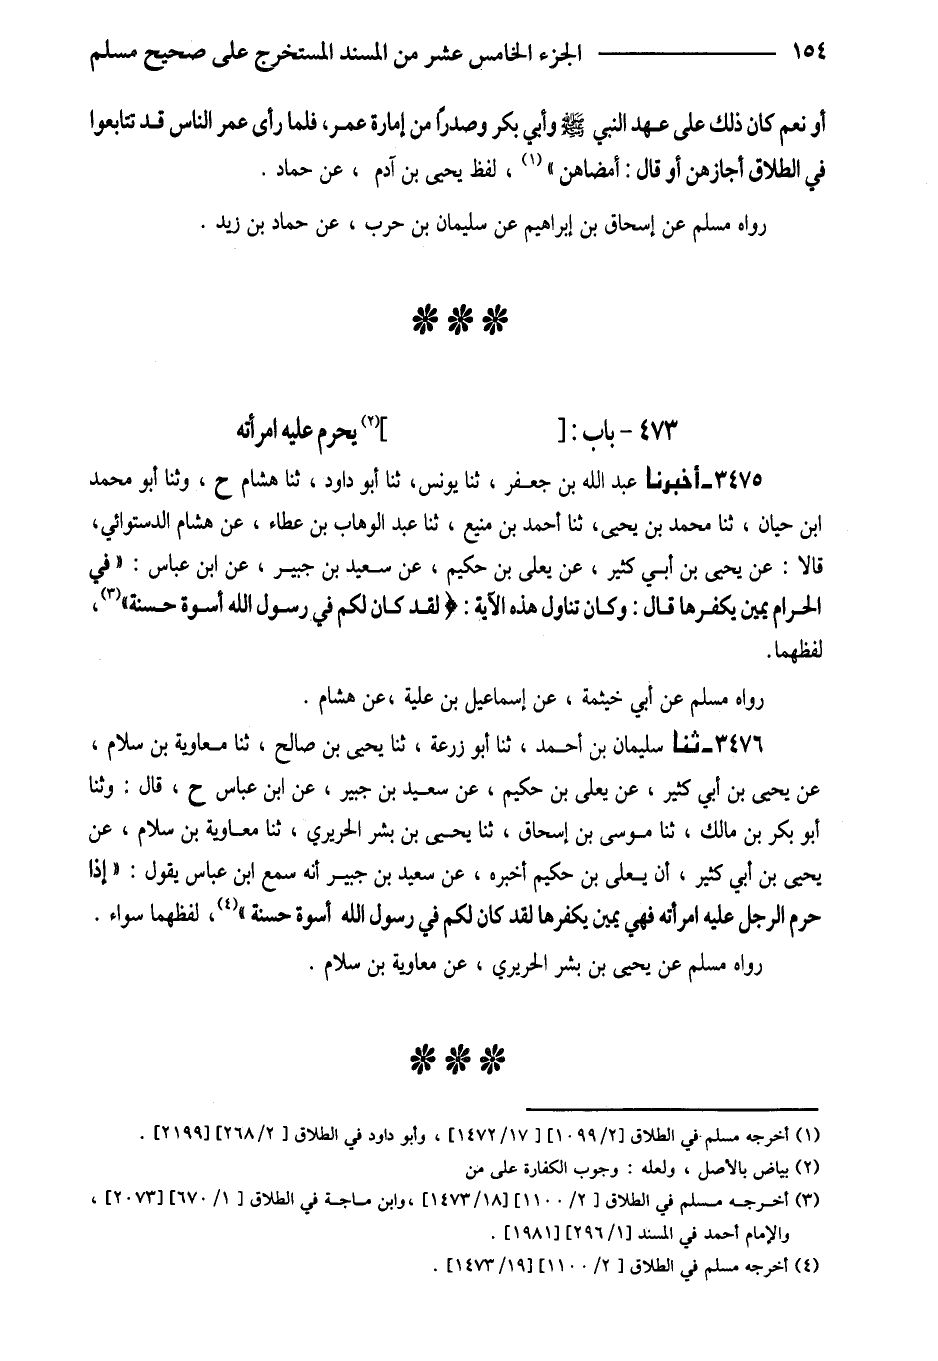 ١٥٤ ــــــــــــ الجزء الخامس عشر من المسند المستخرج على صحيح مسلم
أو نعم كان ذلك على عهد النبي ﷺ وأبي بكر وصدراً من إمارة عمر، فلما رأى عمر الناس قد تتابعوا
في الطلاق أجازهن أو قال : أمضاهن » (١) ، لفظ يحيى بن آدم ، عن حماد .
رواه مسلم عن إسحاق بن إبراهيم عن سليمان بن حرب ، عن حماد بن زيد .
٤٧٣ - باب : [ ](٢) يحرم عليه امرأته
٣٤٧٥ـ أخبرنا عبد الله بن جعفر ، ثنا يونس، ثنا أبو داود ، ثنا هشام ح ، وثنا أبو محمد
ابن حيان ، ثنا محمد بن يحيى، ثنا أحمد بن منيع ، ثنا عبد الوهاب بن عطاء ، عن هشام الدستوائي،
قالا : عن يحيى بن أبي كثير ، عن يعلى بن حكيم ، عن سعيد بن جبير ، عن ابن عباس : « في
الحرام يمين يكفرها قال : وكان تناول هذه الآية : ﴿ لقد كان لكم في رسول الله أسوة حسنة»(٣)،
لفظهما.
رواه مسلم عن أبي خيثمة ، عن إسماعيل بن علية ،عن هشام .
٣٤٧٦ـ ثنا سليمان بن أحمد ، ثنا أبو زرعة ، ثنا يحيى بن صالح ، ثنا معاوية بن سلام ،
عن يحيى بن أبي كثير ، عن يعلى بن حكيم ، عن سعيد بن جبير ، عن ابن عباس ح ، قال : وثنا
أبو بكر بن مالك ، ثنا موسى بن إسحاق ، ثنا يحيى بن بشر الحريري ، ثنا معاوية بن سلام ، عن
يحيى بن أبي كثير ، أن يعلى بن حكيم أخبره ، عن سعيد بن جبير أنه سمع ابن عباس يقول : « إذا
حرم الرجل عليه امرأته فهي يمين يكفرها لقد كان لكم في رسول الله أسوة حسنة »(٤)، لفظهما سواء .
رواه مسلم عن يحيى بن بشر الحريري ، عن معاوية بن سلام .
(١) أخرجه مسلم في الطلاق [١٠٩٩/٢] [ ١٤٧٢/١٧] ، وأبو داود في الطلاق [ ٢٦٨/٢] [٢١٩٩] .
(٢) بياض بالأصل ، ولعله : وجوب الكفارة على من
(٣) أخرجه مسلم في الطلاق [ ١١٠٠/٢] [١٤٧٣/١٨] ،وابن ماجة في الطلاق [ ٦٧٠/١] [٢٠٧٣] ،
والإمام أحمد في المسند [٢٩٦/١] [١٩٨١] .
(٤) أخرجه مسلم في الطلاق [ ١١٠٠/٢] [١٤٧٣/١٩] .